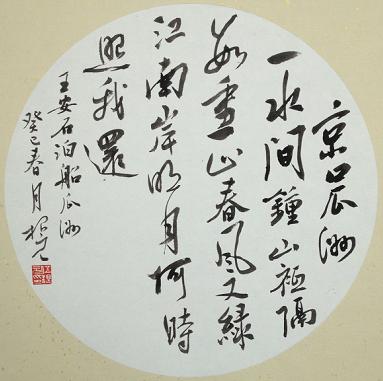 京口瓜洲
一水間鍾山祗隔
数重山春风又緑
江南岸明月何時
照我還
王安石泊船瓜洲
癸巳春月